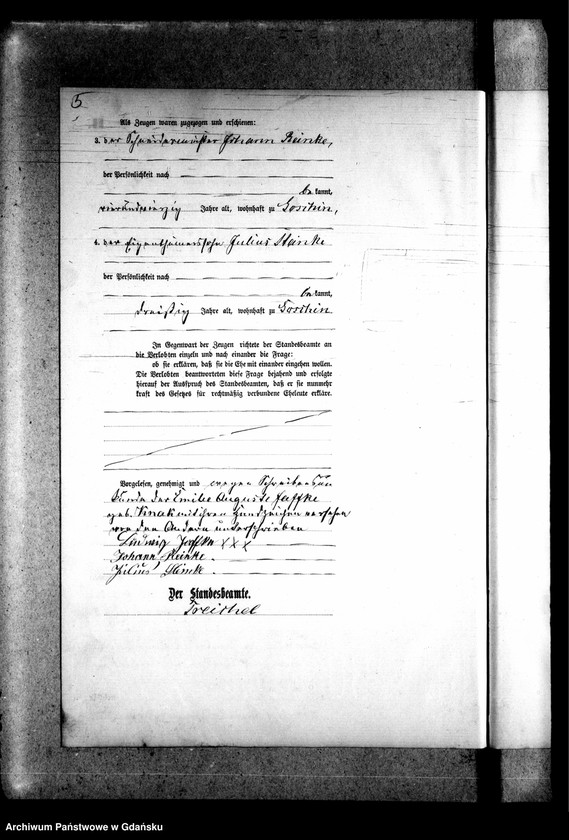 5
Als Zeugen waren zugezogen und erschienen:
3. der Schneidermeister Johann Reinke,
der Persönlichkeit nach
be kannt,
vierundvierzig Jahre alt, wohnhaft zu Goschin,
4. der Eigenthümerssohn Julius
der Persönlichkeit nach
be kannt,
dreißig Jahre alt, wohnhaft zu Goschin
In Gegenwart der Zeugen richtete der Standesbeamte an
die Verlobten einzeln und nach einander die Frage:
ob sie erklären, daß sie die Ehe mit einander eingehen wollen.
Die Verlobten beantworteten diese Frage bejahend und erfolgte
hierauf der Ausspruch des Standesbeamten, daß er sie nunmehr
kraft des Gesetzes für rechtmäßig verbundene Eheleute erkläre.
Vorgelesen, genehmigt und wegen Schreibensun
kunde der Emilie Auguste Jaffke
geb. mit ihren Handzeichen versehen
von den Andern unterschrieben
Ludwig Jaffke XXX
Johann Reinke.
Julius
Der Standesbeamte.
Treichel
Archiwum Państwowe w Gdańsku